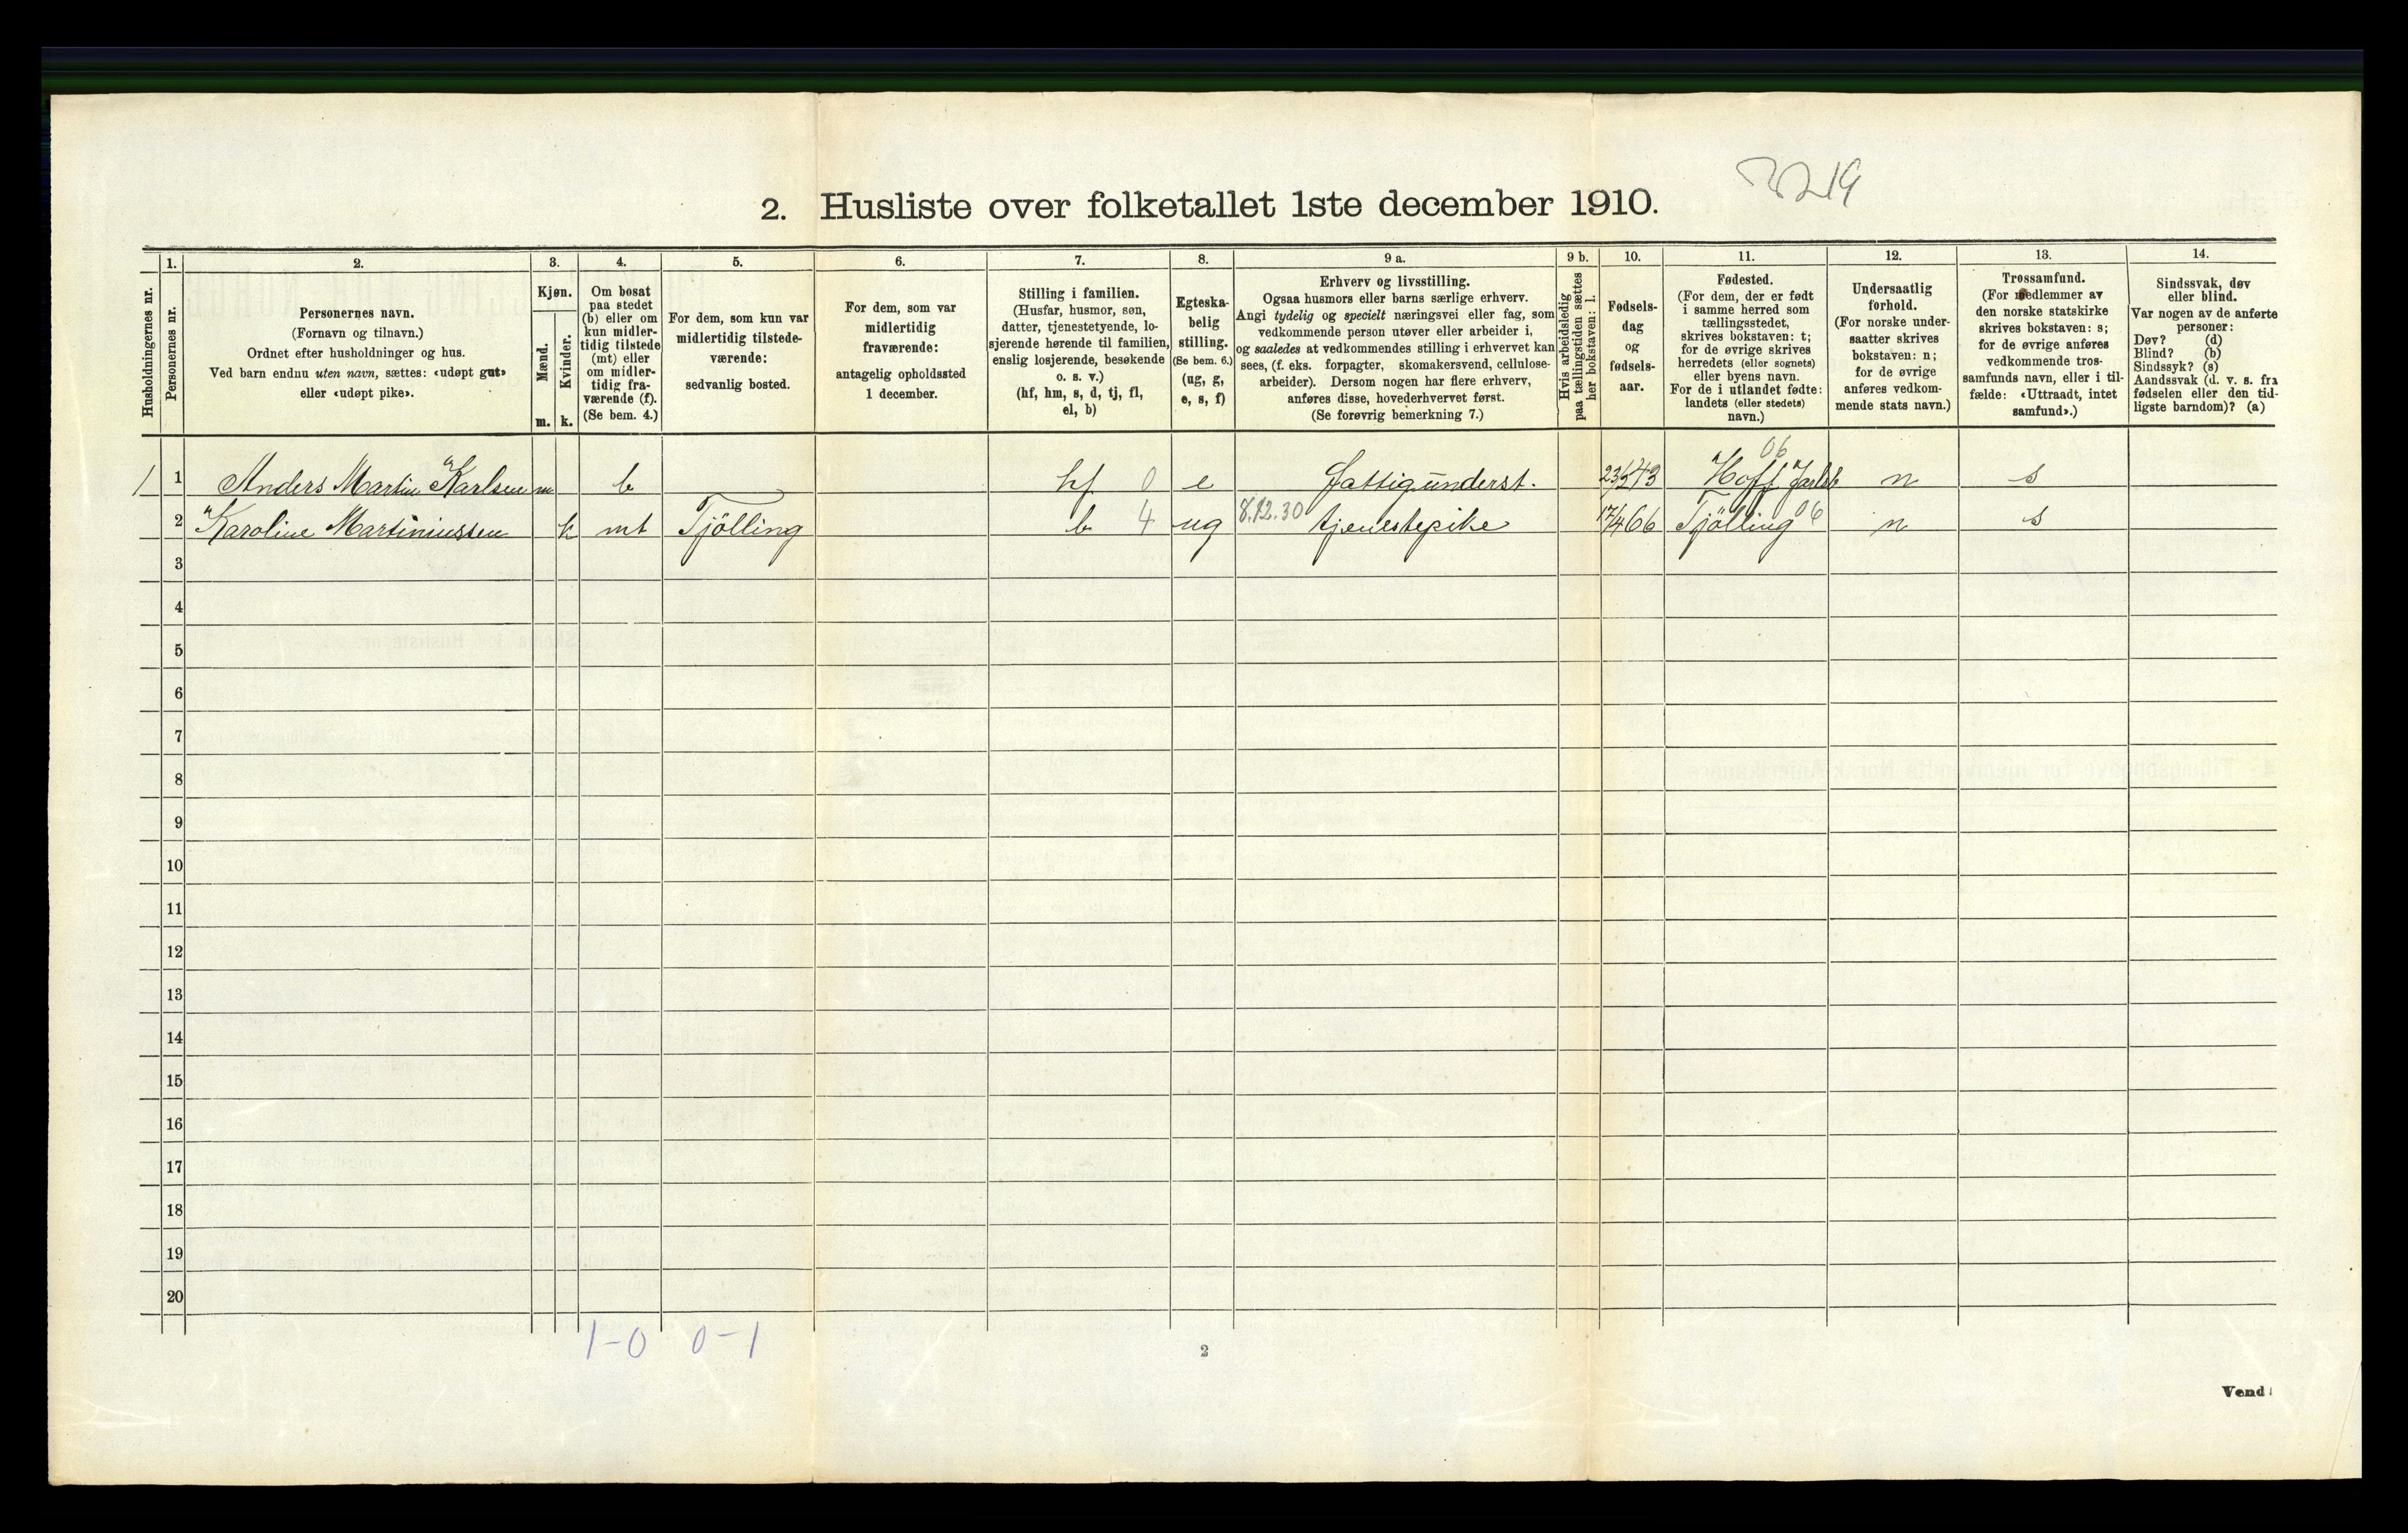 2. Husliste over folketallet 1ste december 1910.
Husholdningernes nr.
1.
Personernes nr.
2.
Personernes navn.
(Fornavn og tilnavn.)
Ordnet efter husholdninger og hus.
Ved barn endnu uten navn, sættes: «udøpt gut»
eller «udøpt pike».
3.
Kjøn.
Mænd.
m.
Kvinder.
k.
4.
Om bosat
paa stedet
(b) eller om
kun midler-
tidig tilstede
(mt) eller
om midler-
tidig fra-
værende (f).
(Se bem. 4.)
5.
For dem, som kun var
midlertidig tilstede-
værende:
sedvanlig bosted.
6.
For dem, som var
midlertidig
fraværende:
antagelig opholdssted
1 december.
7.
Stilling i familien.
(Husfar, husmor, søn,
datter, tjenestetyende, lo-
sjerende hørende til familien,
enslig losjerende, besøkende
o. s. v.)
(hf, hm, s, d, tj, fl,
el, b)
8.
Egteska-
belig
stilling.
(Se bem. 6.)
(ug, g,
e, s, f)
9 a.
Erhverv og livsstilling.
Ogsaa husmors eller barns særlige erhverv.
Angi tydelig og specielt næringsvei eller fag, som
vedkommende person utøver eller arbeider i,
og saaledes at vedkommendes stilling i erhvervet kan
sees, (f. eks. forpagter, skomakersvend, cellulose-
arbeider). Dersom nogen har flere erhverv,
anføres disse, hovederhvervet først.
(Se forøvrig bemerkning 7.)
9 b.
Hvis arbeidsledig
paa tællingstiden sættes
her bokstaven: l.
10.
Fødsels-
dag
og
fødsels-
aar.
11.
Fødested.
(For dem, der er født
i samme herred som
tællingsstedet,
skrives bokstaven: t;
for de øvrige skrives
herredets (eller sognets)
eller byens navn.
For de i utlandet fødte:
landets (eller stedets)
navn.)
12.
Undersaatlig
forhold.
(For norske under-
saatter skrives
bokstaven: n;
for de øvrige
anføres vedkom-
mende stats navn.)
13.
Trossamfund.
(For medlemmer av
den norske statskirke
skrives bokstaven: s;
for de øvrige anføres
vedkommende tros-
samfunds navn, eller i til-
fælde: «Uttraadt, intet
samfund».)
14.
Sindssvak, døv
eller blind.
Var nogen av de anførte
personer:
Døv? (d)
Blind? (b)
Sindssyk? (s)
Aandssvak (d. v. s. fra
fødselen eller den tid-
ligste barndom)? (a)
06
1 1 Anders Martin Karlsen m b hf 0 e fattigunderst. Hoff Jarlsb n s
2 Karoline Martiniussen k mt Tjölling b 4 ug 8.12.30 tjenestepike 17/4 66 Tjölling 06 n s
3
4
5
6
7
8
9
10
11
12
13
14
15
16
17
18
19
20
1-0 0-1
2
Vend!